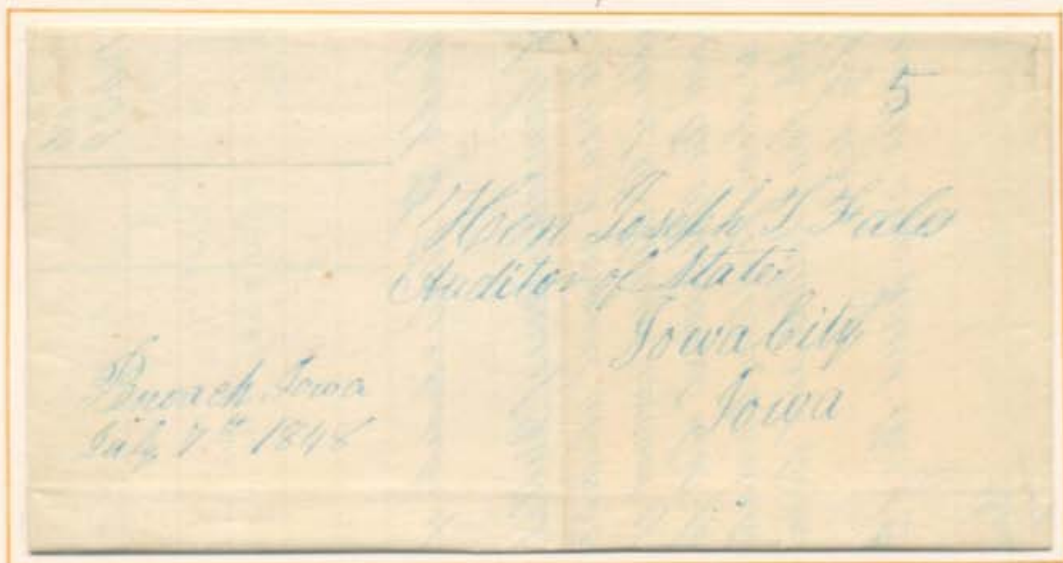 5
Hon Joseph T Fales
Auditor of State
Iowa City
Iowa
Iowa
July 7th 1848